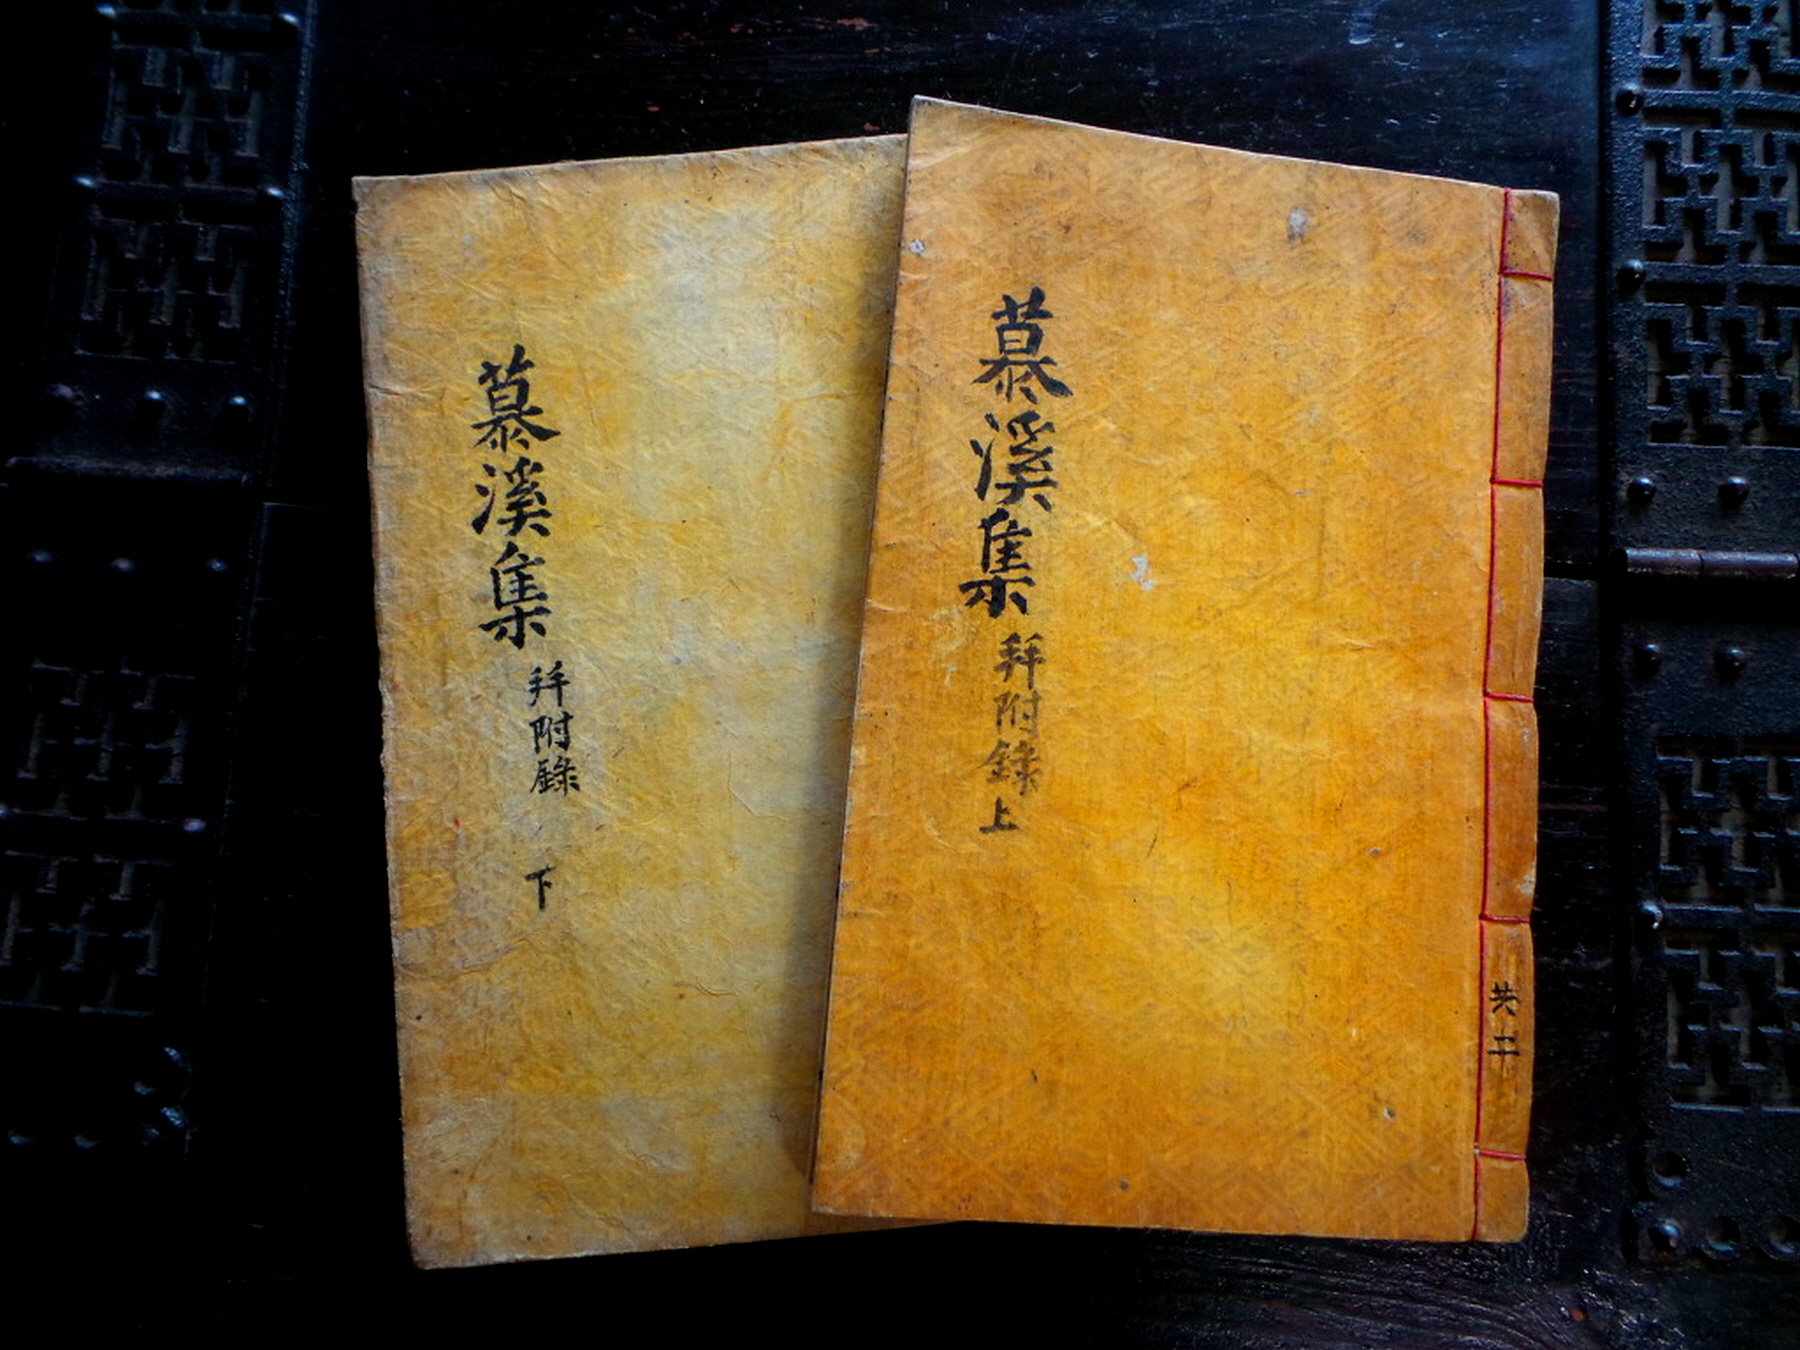 慕溪集 幷附錄 上
共二
慕溪集 幷附錄 下